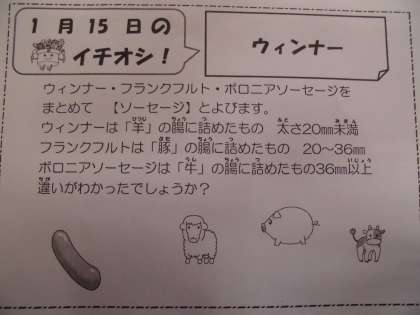 1月15日の
イチオシ!
ウィンナー
ウィンナー・フランクフルト・ボロニアソーセージを
まとめて 【ソーセージ】とよびます。
ウィンナーは「羊」の腸に詰めたもの 太さ20mm未満
フランクフルトは「豚」の腸に詰めたもの 20～36mm
ボロニアソーセージは「牛」の腸に詰めたもの36mm以上
違いがわかったでしょうか？